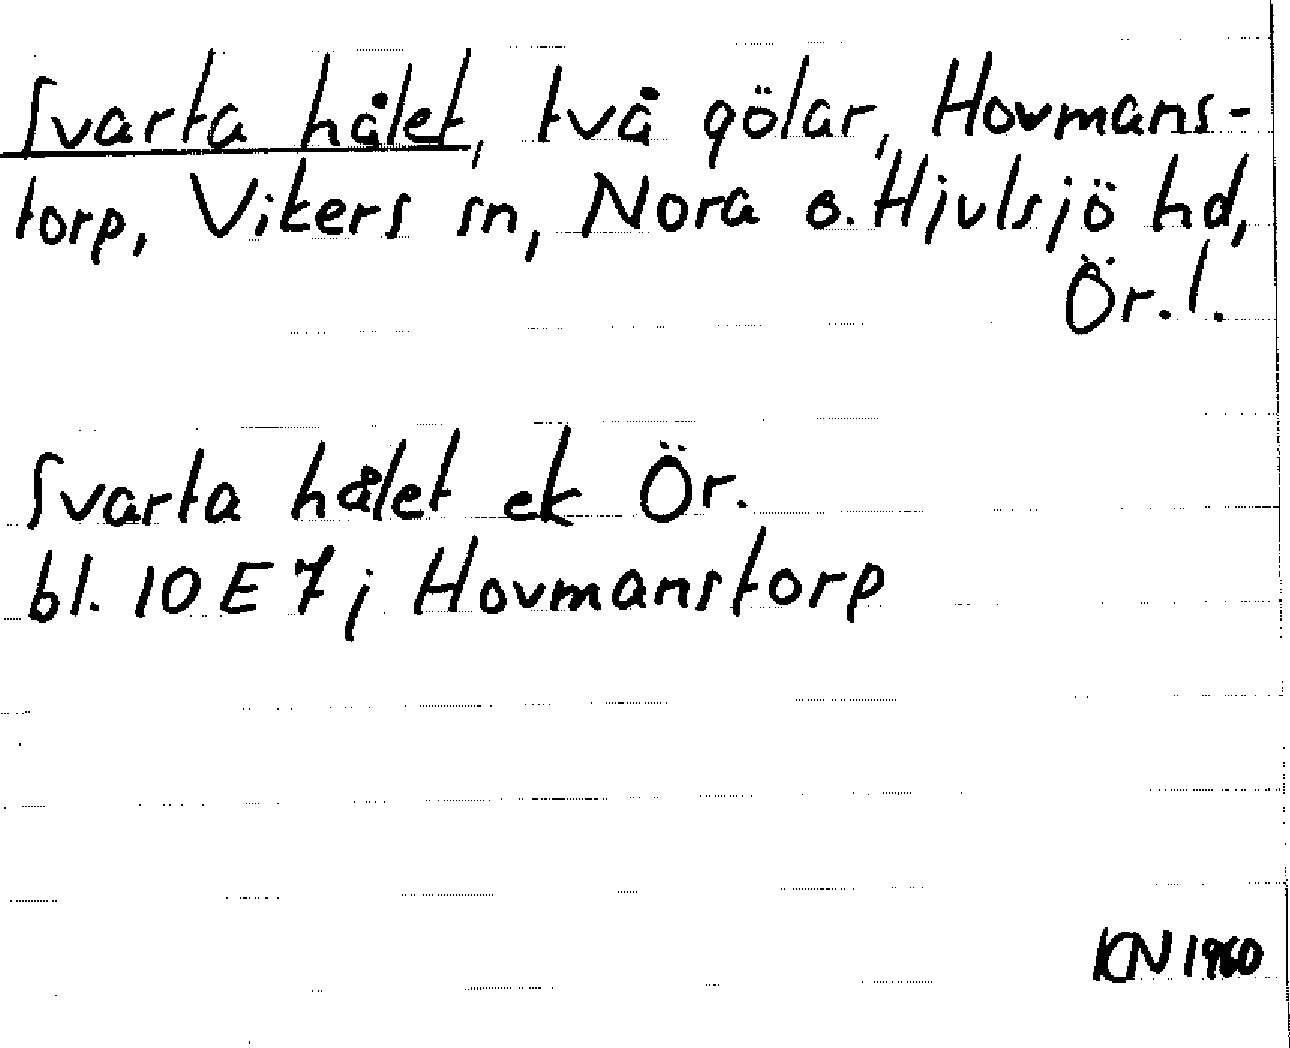 Svarta hålet, två gölar, Hovmans-
torp, Vikers sn, Nora o. Hjulsjö hd,
Ör. l.
Svarta hålet ek Ör.
bl. 10 E 7 j Hovmanstorp
KN 1960